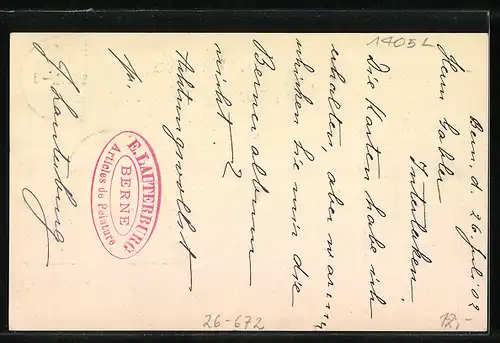 Bern, d. 26. Juli 02
Herrn Gabler
Interlaken.
Die Karten habe ich
erhalten, aber warum
schicken Sie mir die
Berner album
nicht?
Achtungsvollst
J. Lauterburg
E. LAUTERBURG
BERNE
Articles de Peinture
1405 L
26-672
12,-